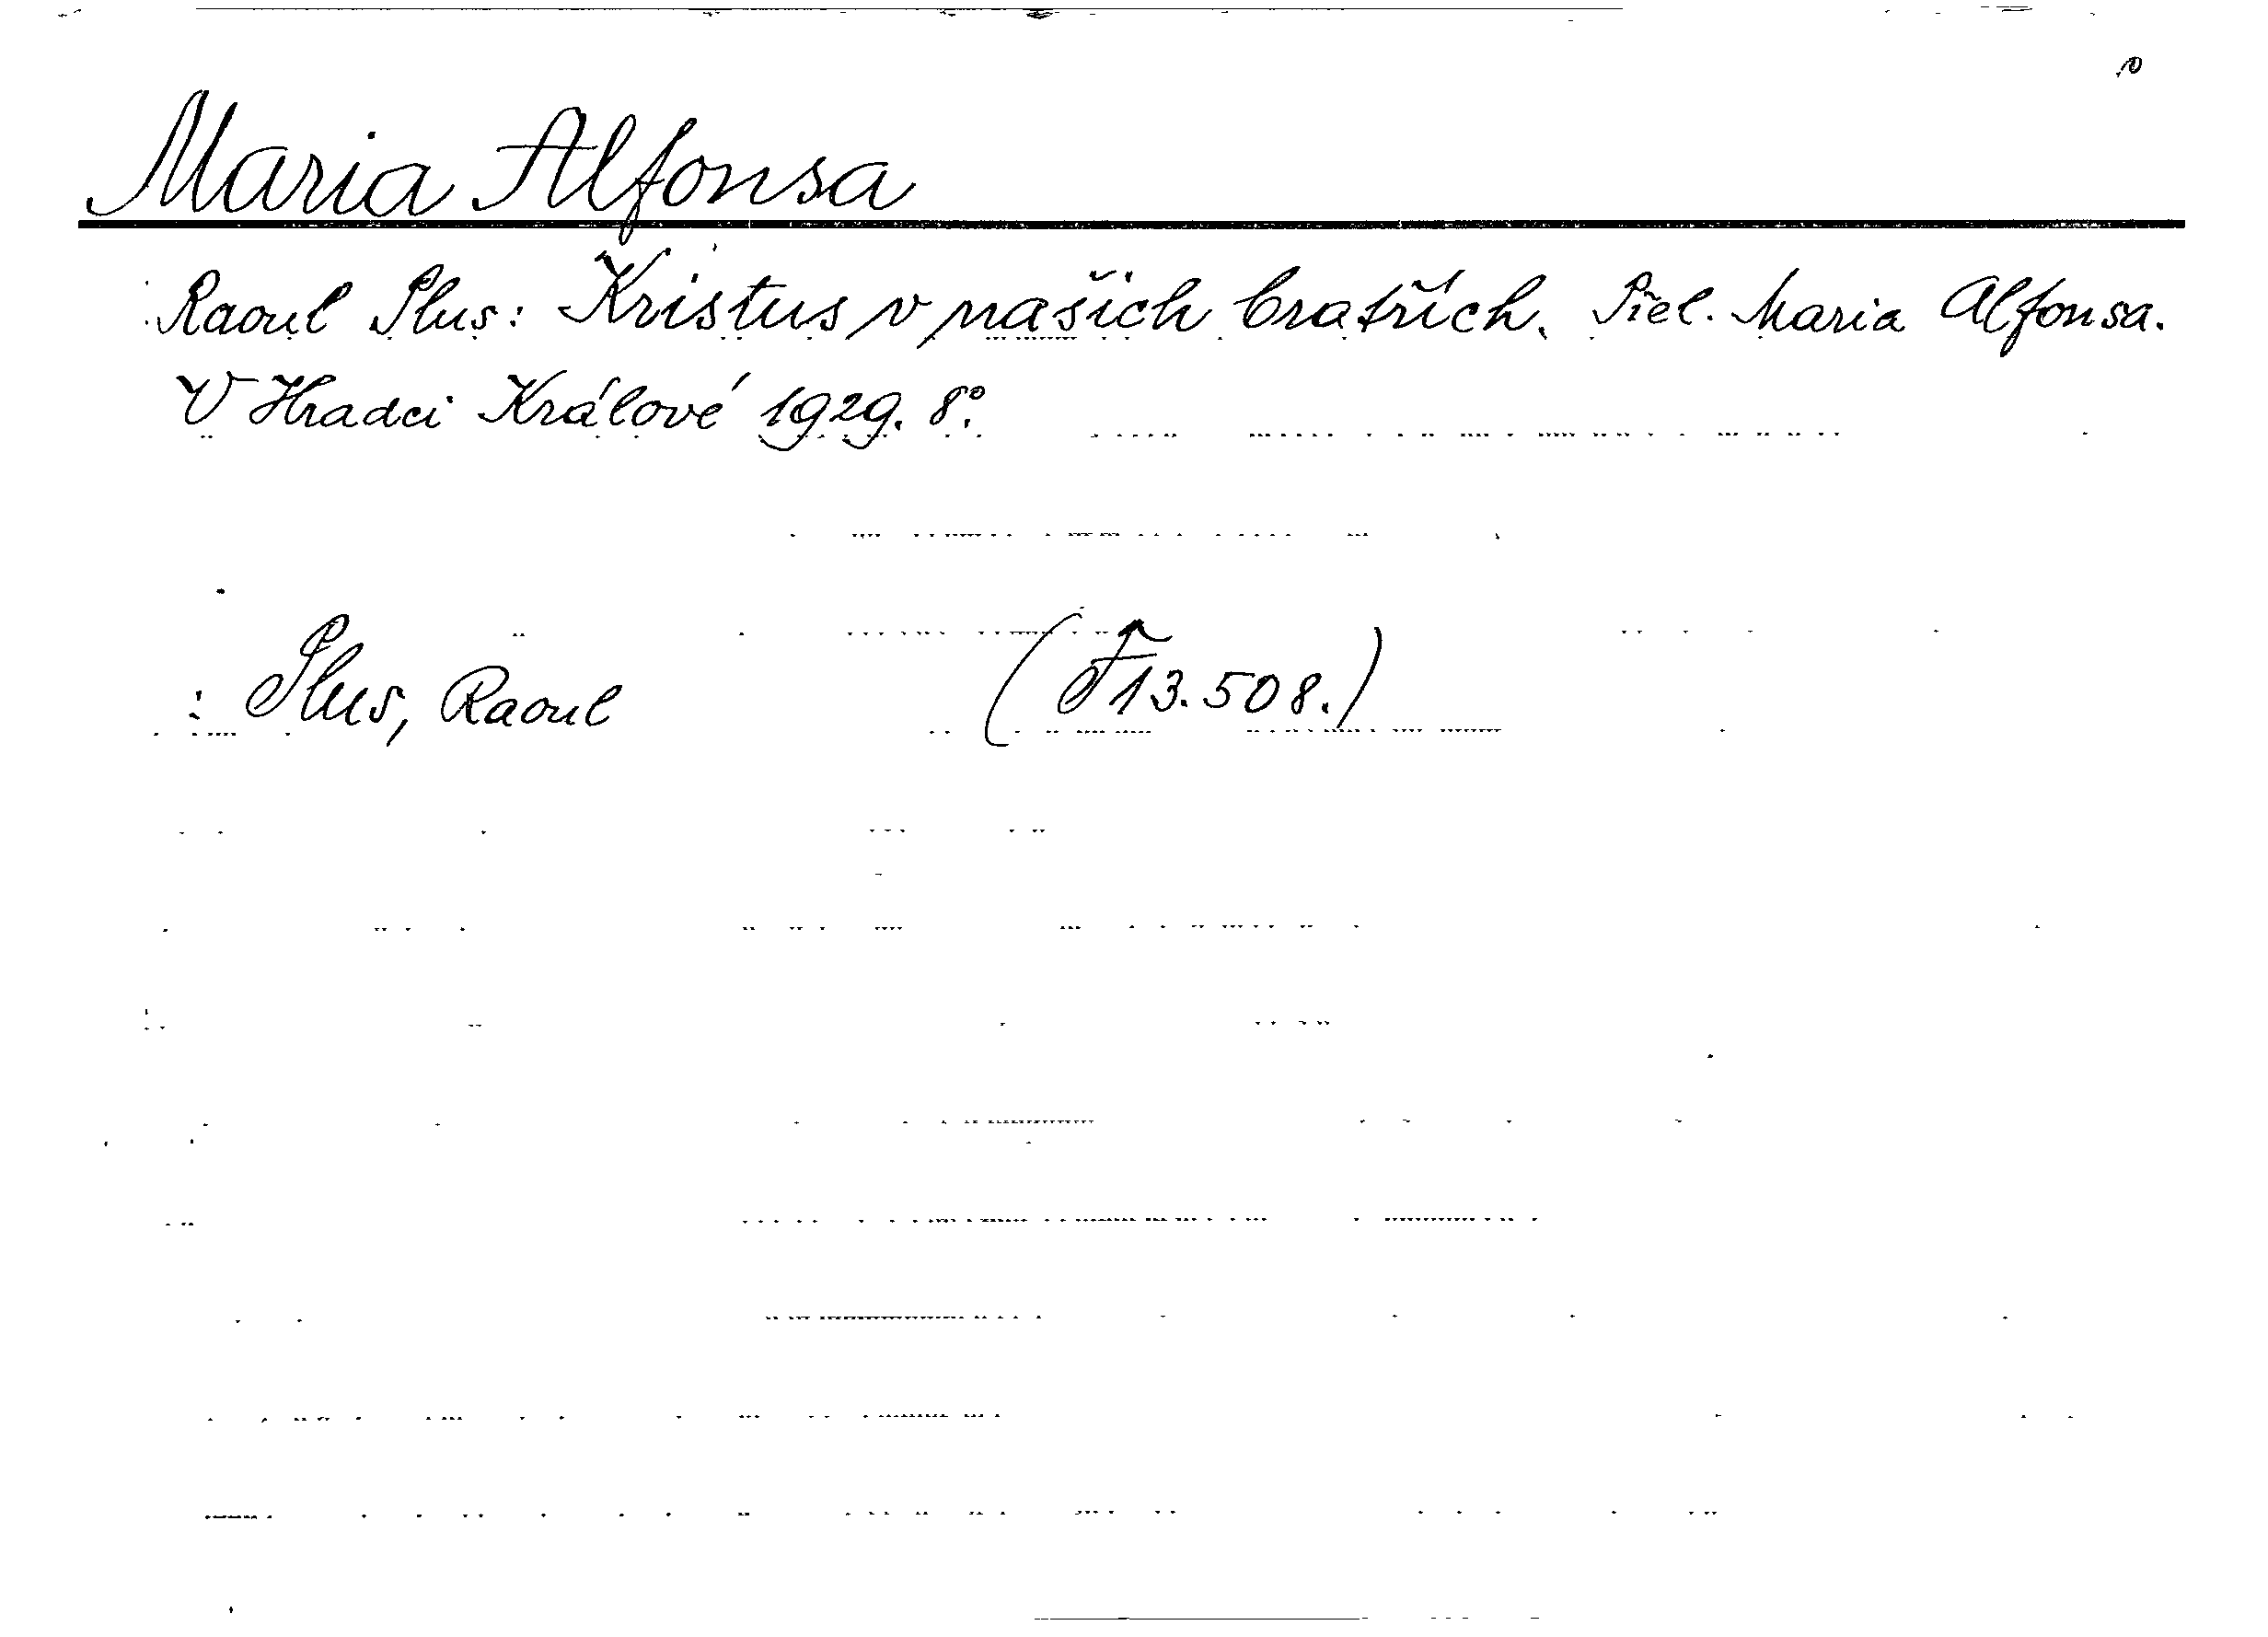 Maria Alfonsa
Raoul Plus: Kristus v našich bratřích. Přel. Maria Alfonsa.
V Hradci Králové 1929. 8°.
: Plus, Raoul (F 13.508.)